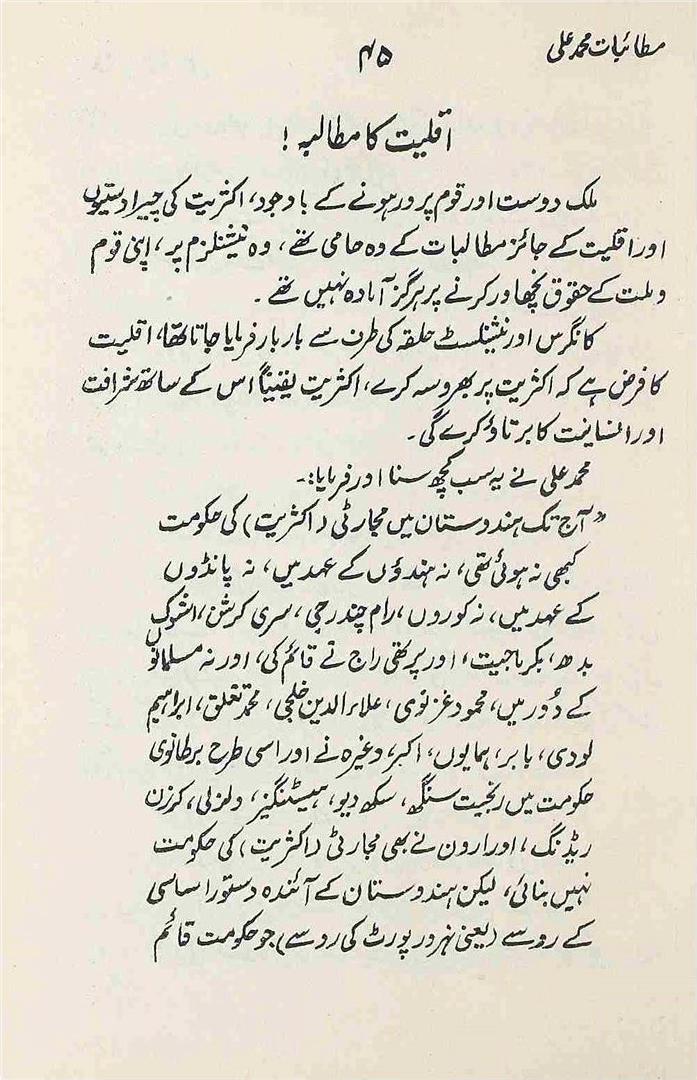 مطائبات محمد علی
۴۵
اقلیت کا مطالبہ !
ملک دوست اور قوم پرور ہونے کے باوجود، اکثریت کی چیرا دستیوں
اور اقلیت کے جائز مطالبات کے وہ حامی تھے، وہ نیشنلزم پر، اپنی قوم
و ملت کے حقوق نچھاور کرنے پر ہرگز آمادہ نہیں تھے۔
کانگرس اور نیشنلسٹ حلقہ کی طرف سے بار بار فرمایا جاتا تھا، اقلیت
کا فرض ہے کہ اکثریت پر بھروسہ کرے، اکثریت یقیناً اس کے ساتھ شرافت
اور انسانیت کا برتاؤ کرے گی۔
محمد علی نے یہ سب کچھ سنا اور فرمایا:۔
"آج تک ہندوستان میں مجارٹی (اکثریت) کی حکومت
کبھی نہ ہوئی تھی، نہ ہندؤں کے عہد میں، نہ پانڈوں
کے عہد میں، نہ کوروں، رام چندرجی، سری کرشن، اشوک
بدھ، بکرماجیت، اور پرتھی راج نے قائم کی، اور نہ مسلمانوں
کے دُور میں، محمود غزنوی، علاء الدین خلجی، محمد تغلق، ابراہیم
لودی، بابر، ہمایوں، اکبر، وغیرہ نے اور اسی طرح برطانوی
حکومت میں رنجیت سنگھ، سکھ دیو، ہیسٹنگیز، ولزلی، کرزن
ریڈنگ، اور ارون نے بھی مجارٹی (اکثریت) کی حکومت
نہیں بنائی، لیکن ہندوستان کے آئندہ دستور اساسی
کے رو سے (یعنی نہرو رپورٹ کی رو سے) جو حکومت قائم